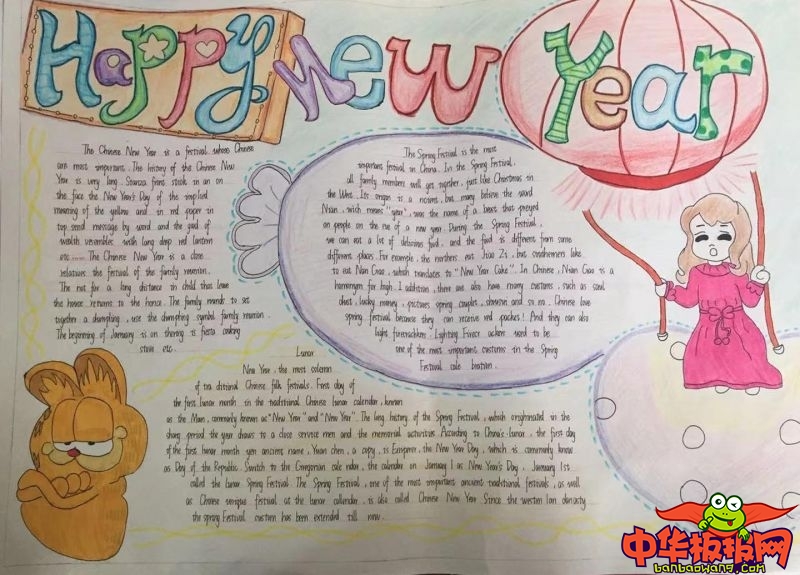 Happy New Year
The Chinese New Year is a festival whose Chinese
are most important. The history of the Chinese New
Year is very long. Stanza firms stick in an on
the face the New Year's Day of the simplied
meaning of the yellow and in red paper in
top send message by word and the god of
wealth resembles with long deep red lantern
etc..... The Chinese New Year is a close
relatives the festival of the family reunion.
The not for a long distance in child that leave
the house returns to the home. The family minds to set
together a dumpling, use the dumpling symbol family reunion.
The beginning of January is on thering is fiesta cooking
stove etc.
The Spring Festival is the most
important festival in China. In the Spring Festival,
all family members will get together, just like Christmas in
the West. Its origin is a ncient, but many believe the word
Nian, which means "year", was the name of a beast that preyed
on people on the eve of a new year. During the Spring Festival,
we can eat a lot of delicious food, and the food is different from some
different places. For example, the northers eat Jiao Zi, but southerners like
to eat Nian Gao, which translates to "New Year Cake". In Chinese, Nian Gao is a
homonym for high. I addition, there are also have many customs, such as send
chat, lucky money, pictures spring couplets, and so on. Chinese love
spring festival because they can receive red packes! And they can also
light firecrackers. Lighting Firecr ackers used to be
one of the most important customs in the Spring
Festival cele bration.
Lunar
New Year, the most solemn
of tra ditional Chinese folk festivals. First day of
the first lunar month in the traditional Chinese lunar calendar, known
as the Nian, commonly known as "New Year" and "New Year". The long history of the Spring Festival, which originated in the
shang period the year draws to a close service men and the memorial activities. According to China's lunar, the first day
of the first lunar month yen ancient name, Yuan chen, a copy, is Emperor, the New Year Day, which is commonly know
as Day of the Republic, Switch to the Gregorian cale ndar, the calendar on January 1 as New Year's Day, January 1st
called the lunar Spring Festival. The Spring Festival, one of the most important ancient traditional festivals, as well
as Chinese unique festival at the lunar calendar, is also called Chinese New Year. Since the western han dynasty
the spring Festival custom has been extended till now.
中华板报网
banbaowang.com